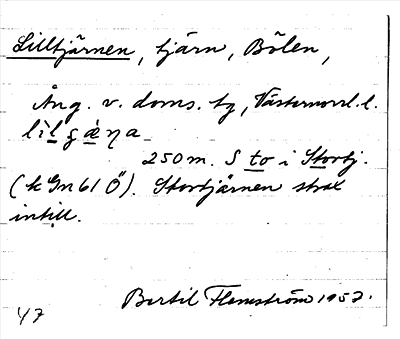 Lilltjärnen, tjärn, Bölen,
Ång. v. doms. tg, Västernorrl. l.
250m. S to i Stortj.
(k Gn 61 Ö). Stortjärnen strax
intill.
Bertil Flemström 1952.
47